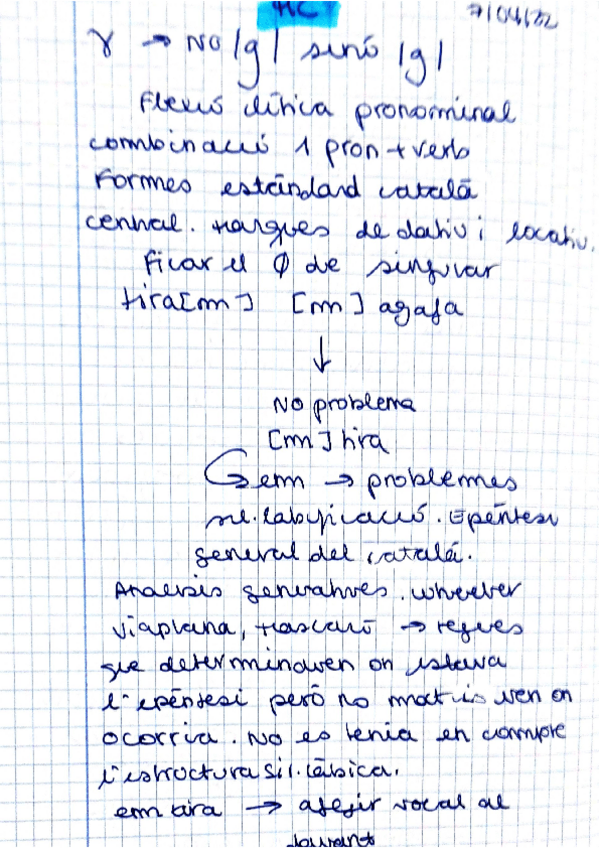 MC
7/04/22
γ → No |g| sinó |g|
Flexió clítica pronominal
combinació 1 pron + verb
Formes estàndard català
central. Marques de datiu i locatiu.
Ficar el ∅ de singular
tira[m] [m] agafa
↓
No problema
[m] tira
em → problemes
sil·labificació. Epèntesi
general del català.
Anàlisis generatives. Wheeler
Viaplana, Mascaró → regles
que determinaven on estava
l'epèntesi però no motivaven on
ocorria. No es tenia en compte
l'estructura sil·làbica.
em tira → afegir vocal al
davant